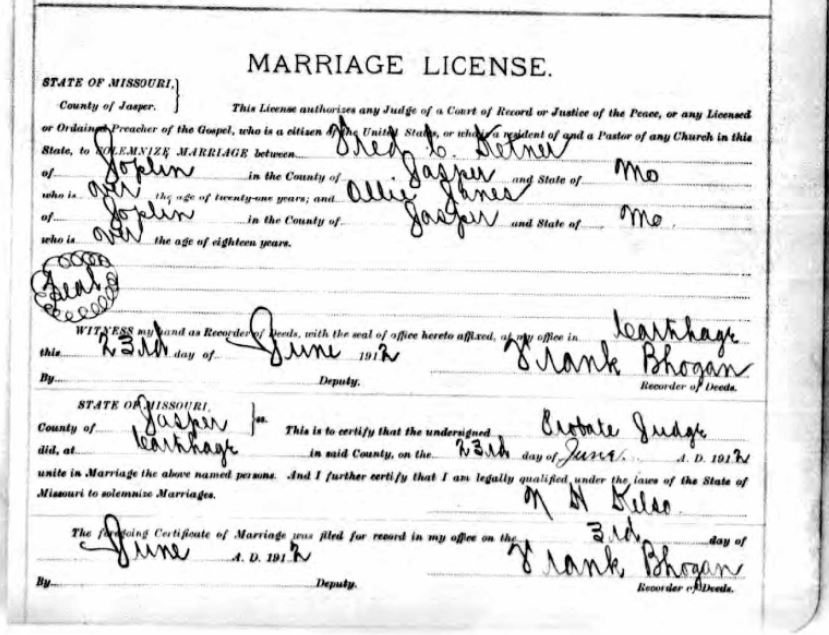 MARRIAGE LICENSE.
STATE OF MISSOURI,
County of Jasper. } This License authorizes any Judge of a Court of Record or Justice of the Peace, or any Licensed
or Ordained Preacher of the Gospel, who is a citizen of the United States, or who is a resident of and a Pastor of any Church in this
State, to SOLEMNIZE MARRIAGE between Fred C. Ketner
of Joplin in the County of Jasper and State of Mo
who is over the age of twenty-one years; and Allie Janes
of Joplin in the County of Jasper and State of Mo.
who is over the age of eighteen years.
Seal
WITNESS my hand as Recorder of Deeds, with the seal of office hereto affixed, at my office in Carthage
this 23rd day of June 1912 Frank Bhogan
By Deputy. Recorder of Deeds.
STATE OF MISSOURI,
County of Jasper } ss. This is to certify that the undersigned Probate Judge
did, at Carthage in said County, on the 23rd day of June A. D. 1912
unite in Marriage the above named persons. And I further certify that I am legally qualified under the laws of the State of
Missouri to solemnize Marriages. N H Kelso
The foregoing Certificate of Marriage was filed for record in my office on the 3rd day of
June A. D. 1912 Frank Bhogan
By Deputy. Recorder of Deeds.